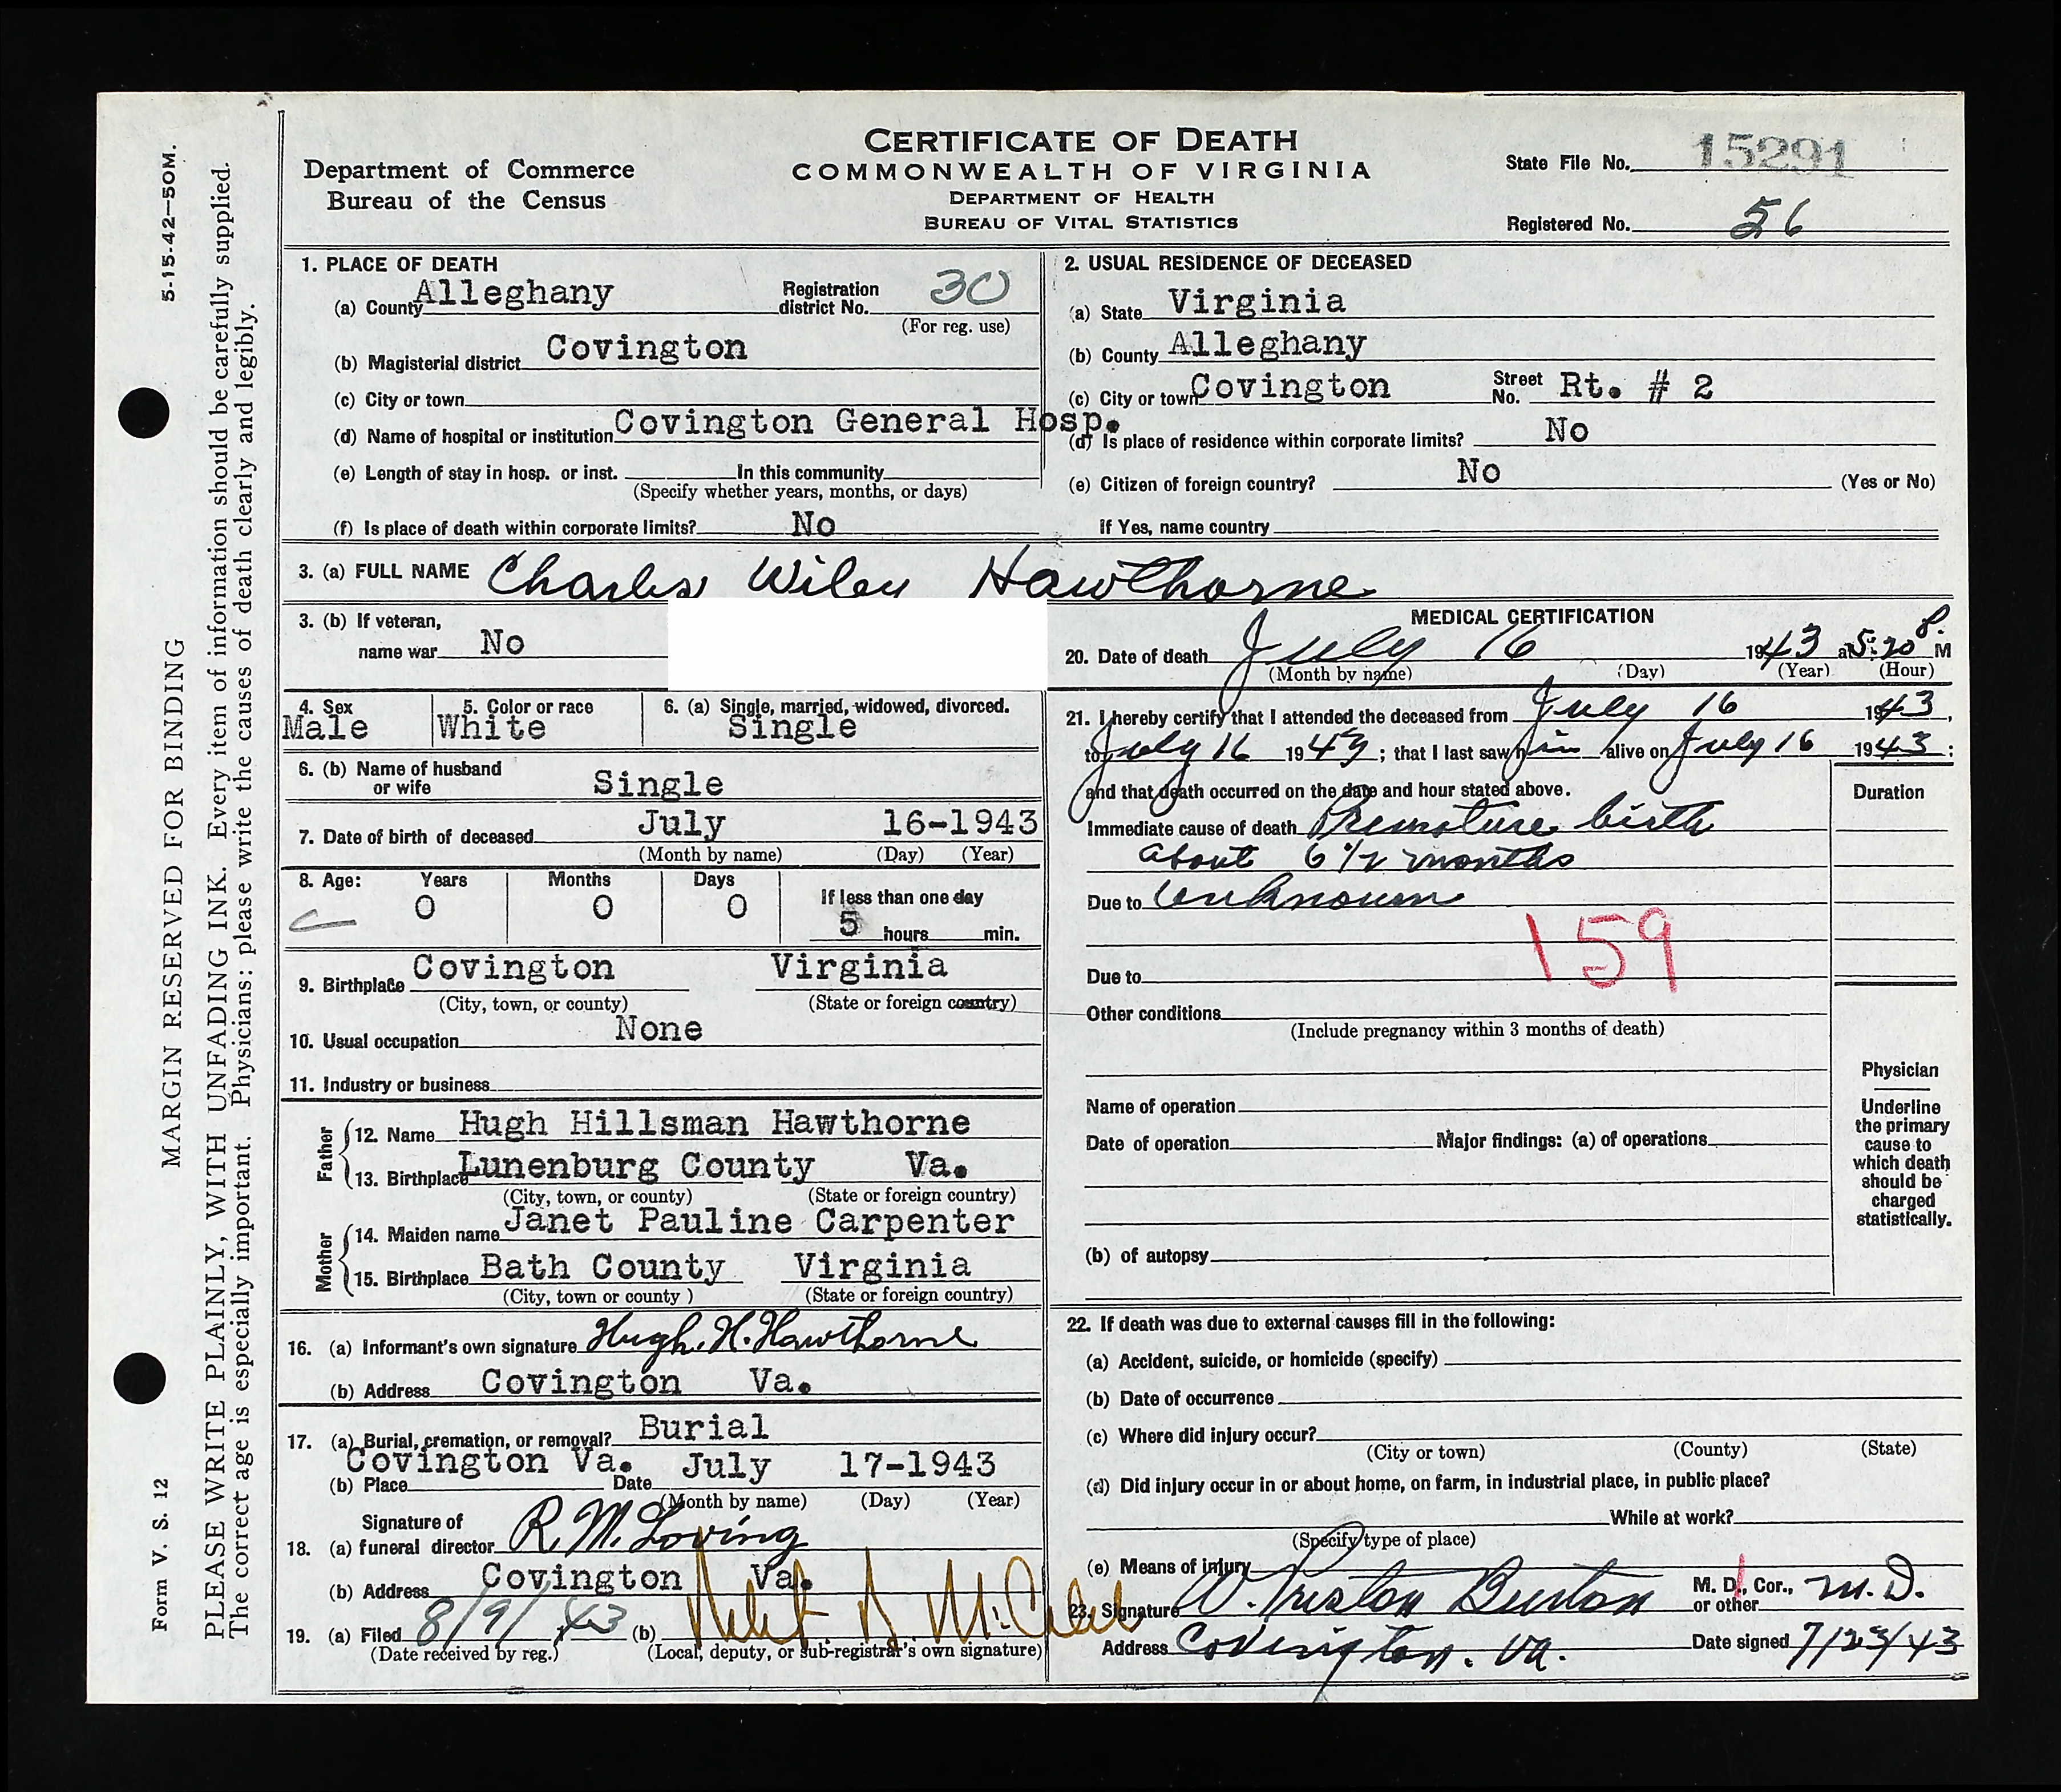 5-15-42—50M.
MARGIN RESERVED FOR BINDING
PLEASE WRITE PLAINLY, WITH UNFADING INK. Every item of information should be carefully supplied.
The correct age is especially important. Physicians: please write the causes of death clearly and legibly.
Form V. S. 12
Department of Commerce
Bureau of the Census
CERTIFICATE OF DEATH
COMMONWEALTH OF VIRGINIA
DEPARTMENT OF HEALTH
BUREAU OF VITAL STATISTICS
State File No. 15291
Registered No. 56
1. PLACE OF DEATH
(a) County Alleghany Registration district No. 30
(For reg. use)
(b) Magisterial district Covington
(c) City or town
(d) Name of hospital or institution Covington General Hosp.
(e) Length of stay in hosp. or inst. In this community
(Specify whether years, months, or days)
(f) Is place of death within corporate limits? No
2. USUAL RESIDENCE OF DECEASED
(a) State Virginia
(b) County Alleghany
(c) City or town Covington Street No. Rt. # 2
(d) Is place of residence within corporate limits? No
(e) Citizen of foreign country? No (Yes or No)
If Yes, name country
3. (a) FULL NAME Charles Wiley Hawthorne
3. (b) If veteran, name war No
4. Sex Male
5. Color or race White
6. (a) Single, married, widowed, divorced. Single
6. (b) Name of husband or wife Single
7. Date of birth of deceased July 16-1943
(Month by name) (Day) (Year)
8. Age: Years Months Days If less than one day
0 0 0 5 hours min.
9. Birthplace Covington Virginia
(City, town, or county) (State or foreign country)
10. Usual occupation None
11. Industry or business
Father
12. Name Hugh Hillsman Hawthorne
13. Birthplace Lunenburg County Va.
(City, town, or county) (State or foreign country)
Mother
14. Maiden name Janet Pauline Carpenter
15. Birthplace Bath County Virginia
(City, town or county ) (State or foreign country)
16. (a) Informant's own signature Hugh. H. Hawthorne
(b) Address Covington Va.
17. (a) Burial, cremation, or removal? Burial
(b) Place Covington Va. Date July 17-1943
(Month by name) (Day) (Year)
18. (a) Signature of funeral director R. M. Loving
(b) Address Covington Va.
19. (a) Filed 8/9/, 43 (b)
(Date received by reg.) (Local, deputy, or sub-registrar's own signature)
MEDICAL CERTIFICATION
20. Date of death July 16 1943 at 5:20 P. M
(Month by name) (Day) (Year) (Hour)
21. I hereby certify that I attended the deceased from July 16 1943,
to July 16 1943; that I last saw him alive on July 16 1943:
and that death occurred on the date and hour stated above.
Duration
Immediate cause of death Premature birth
about 6 1/2 months
Due to Unknown
159
Due to
Other conditions
(Include pregnancy within 3 months of death)
Name of operation
Date of operation Major findings: (a) of operations
(b) of autopsy
Physician
Underline
the primary
cause to
which death
should be
charged
statistically.
22. If death was due to external causes fill in the following:
(a) Accident, suicide, or homicide (specify)
(b) Date of occurrence
(c) Where did injury occur?
(City or town) (County) (State)
(d) Did injury occur in or about home, on farm, in industrial place, in public place?
While at work?
(Specify type of place)
(e) Means of injury
23. Signature W. Preston Burton M. D., Cor., or other M.D.
Address Covington. Va. Date signed 7/23/43